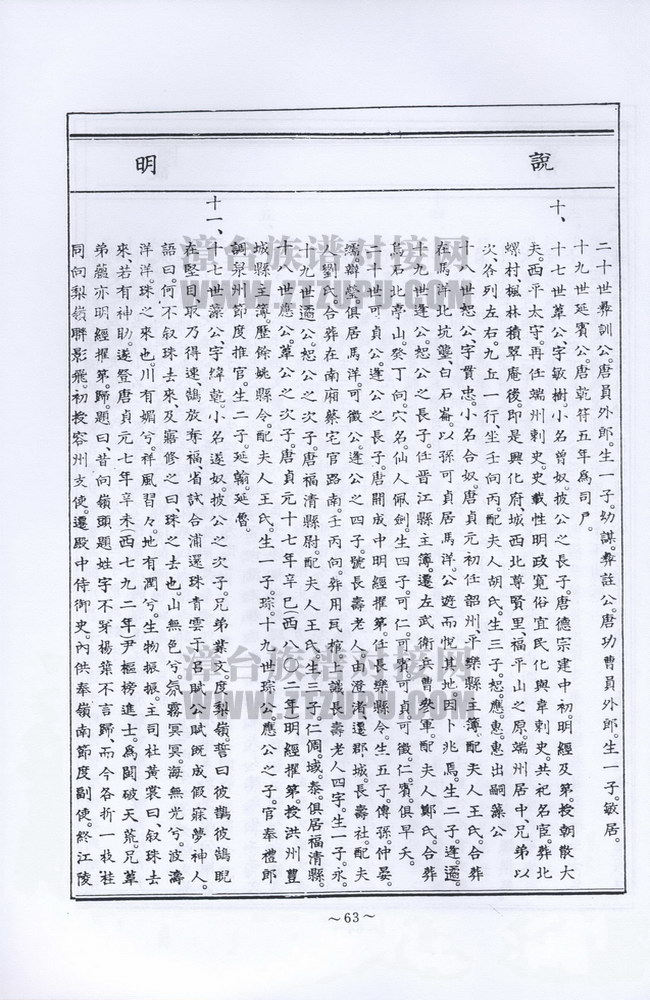 說明
二十世彝訓公。唐員外郎。生一子。幼謀。彝註公。唐功曹員外郎。生一子。敏居。
十九世延賓公。唐乾符五年為司戶。
十、
十七世葦公、字敏樹、小名曾奴、披公之長子。唐德宗建中初。明經及第。授朝散大
夫。西平太守。再任端州剌史。史載性明政寬俗宜民化與韋剌史。共祀名宦。葬北
螺村、楓林積翠庵後。即是興化府、城西北尊賢里、福平山之原。端州居中、兄弟以
次、各列左右。九丘一行、坐壬向丙。配夫人胡氏。生三子。恕。應。惠。惠出嗣藻公
十八世恕公、字貫忠。小名合奴。唐貞元初任韶州、平樂縣主簿。配夫人王氏。合葬
在馬洋北坑䃗、白石崙。以孫可貞居馬洋。公遊而悅其地因卜兆焉。生二子。逢。遹。
十九世逢公。恕公之長子。任晉江縣主簿。遷左武衛兵曹參軍。配夫人鄭氏。合葬
烏石北亭山。癸丁向穴名仙人佩劍。生四子。可仁。可賓。可貞。可徵。仁。賓。俱早夭。
二十世可貞公。逢公之長子。唐開成中明經擢第。任長樂縣令。生五子。傳孫。仲晏。
濡。翰。蔡。俱居馬洋。可徵公。逢公之四子。號長壽老人。由澄渚遷郡城。長壽社。配夫
人劉氏。合葬在南廂蔡宅官路南。壬丙向。葬用瓦棺。識長壽老人四字。生一子。永
十九世遹公。恕公之次子。唐福清縣尉。配夫人王氏。生三子。仁倜。域。泰。俱居福清縣。
十八世應公。葦公之次子。唐貞元十七年辛巳(西八〇二年)明經擢第。授洪州豐
城縣主簿。歷餘姚縣令。配夫人王氏。生一子。琮。十九世琮公。應公之子。官奉禮郎
調泉州節度推官。生二子。延翰。延魯。
十一、
十七世藻公、字緯乾、小名遂奴、披公之次子。兄弟業文。度梨嶺。誓曰彼鵲彼鵠睨
在堅目。取乃得速、鵠放奪福、省試合浦還珠青雲于呂賦公賦既成假寐夢神人。
語曰。何不叙珠去來及寤修之曰、珠之去也。山無色兮。氛霧冥冥。海無光兮。波濤
洋洋。珠之來也。川有媚兮。祥風習々。地有潤兮。生物振振。主司杜黃裳曰、叙珠去
來、若有神助。遂登唐貞元七年辛未(西七九二年)尹樞榜進士。為閩破天荒。兄葦
弟蘊亦明經擢第。歸。題曰昔向嶺頭題姓字不穿楊葉不言歸而今各折一枝桂
同向梨嶺聯影飛。初授容州支使。遷殿中侍御史。內供奉嶺南節度副使。終江陵
～63～
漳台族谱对接网
漳台族谱对接网